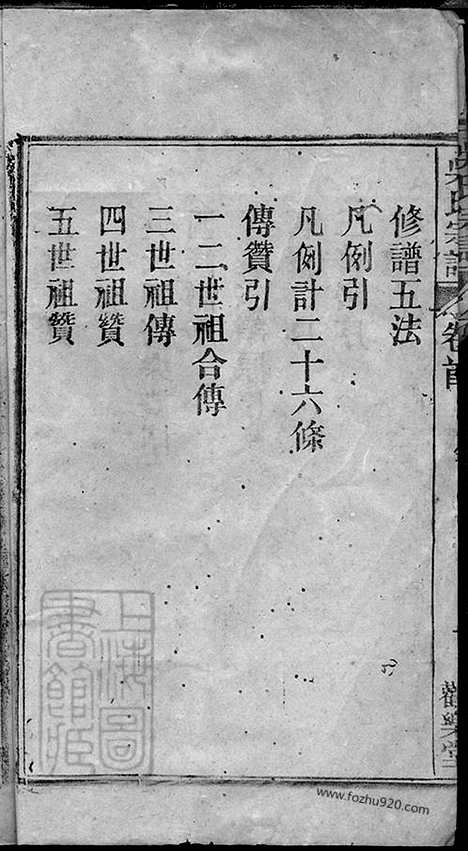 修譜五法
凡例引
凡例計二十六條
傳贊引
一二世祖合傳
三世祖傳
四世祖贊
五世祖贊
氏宗譜
卷首
敬樂堂
上海圖書館藏
www.fozhu920.com